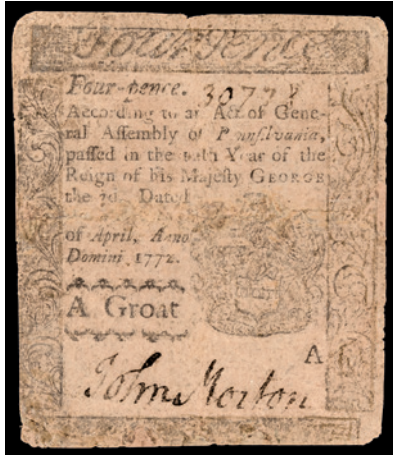 Four Pence
Four-pence. 30778
According to an Act of Gene-
ral Aſſembly of Pennſilvania,
paſſed in the Year of the
Reign of his Majeſty GEORGE
the 3d. Dated
of April, Anno
Domini, 1772.
A Groat
A
John Morton